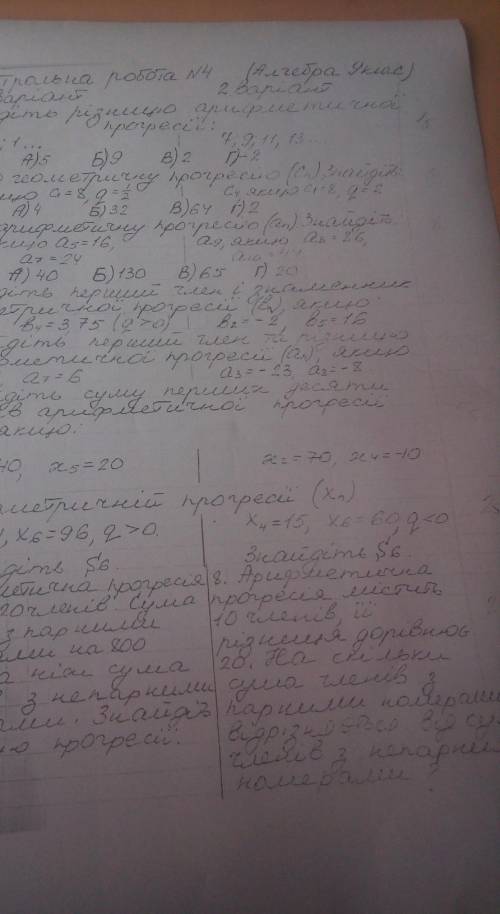 трольна робота №4 (Алгебра 9 клас)
варіант 2 варіант
діть різницю арифметичної
прогресії:
1... 7, 9, 11, 13...
А) 5 Б) 9 В) 2 Г) -2
геометричну прогресію (Cn) Знайдіть
C1 = 8, q = 1/2 C4, якщо C1 = 8, q = 2
А) 4 Б) 32 В) 64 Г) 2
арифметичну прогресію (an) Знайдіть
якщо a5 = 16, a9, якщо a8 = 26,
a7 = 24
А) 40 Б) 130 В) 65 Г) 20
діть перший член і знаменник
метричної прогресії (bn), якщо
b4 = 3,75 (q > 0) b2 = -2, b5 = 16
діть перший член та різницю
метичної прогресії (an), якщо
a7 = 6 a3 = -23, a8 = -8
діть суму перших десяти
ів арифметичної прогресії
якщо:
40, x5 = 20 x2 = 70, x4 = -10
ометричній прогресії (xn)
x6 = 96, q > 0. x4 = 15, x6 = 60, q < 0
діть S6. Знайдіть S6.
метична прогресія 8. Арифметична
20 членів. Сума прогресія містить
з парними 10 членів, її
ами на 800 різниця дорівнює
а ніж сума 20. На скільки
з непарними сума членів з
ами. Знайдіть парними номерами
ю прогресії. відрізняється від су
членів з непарним
номерами?